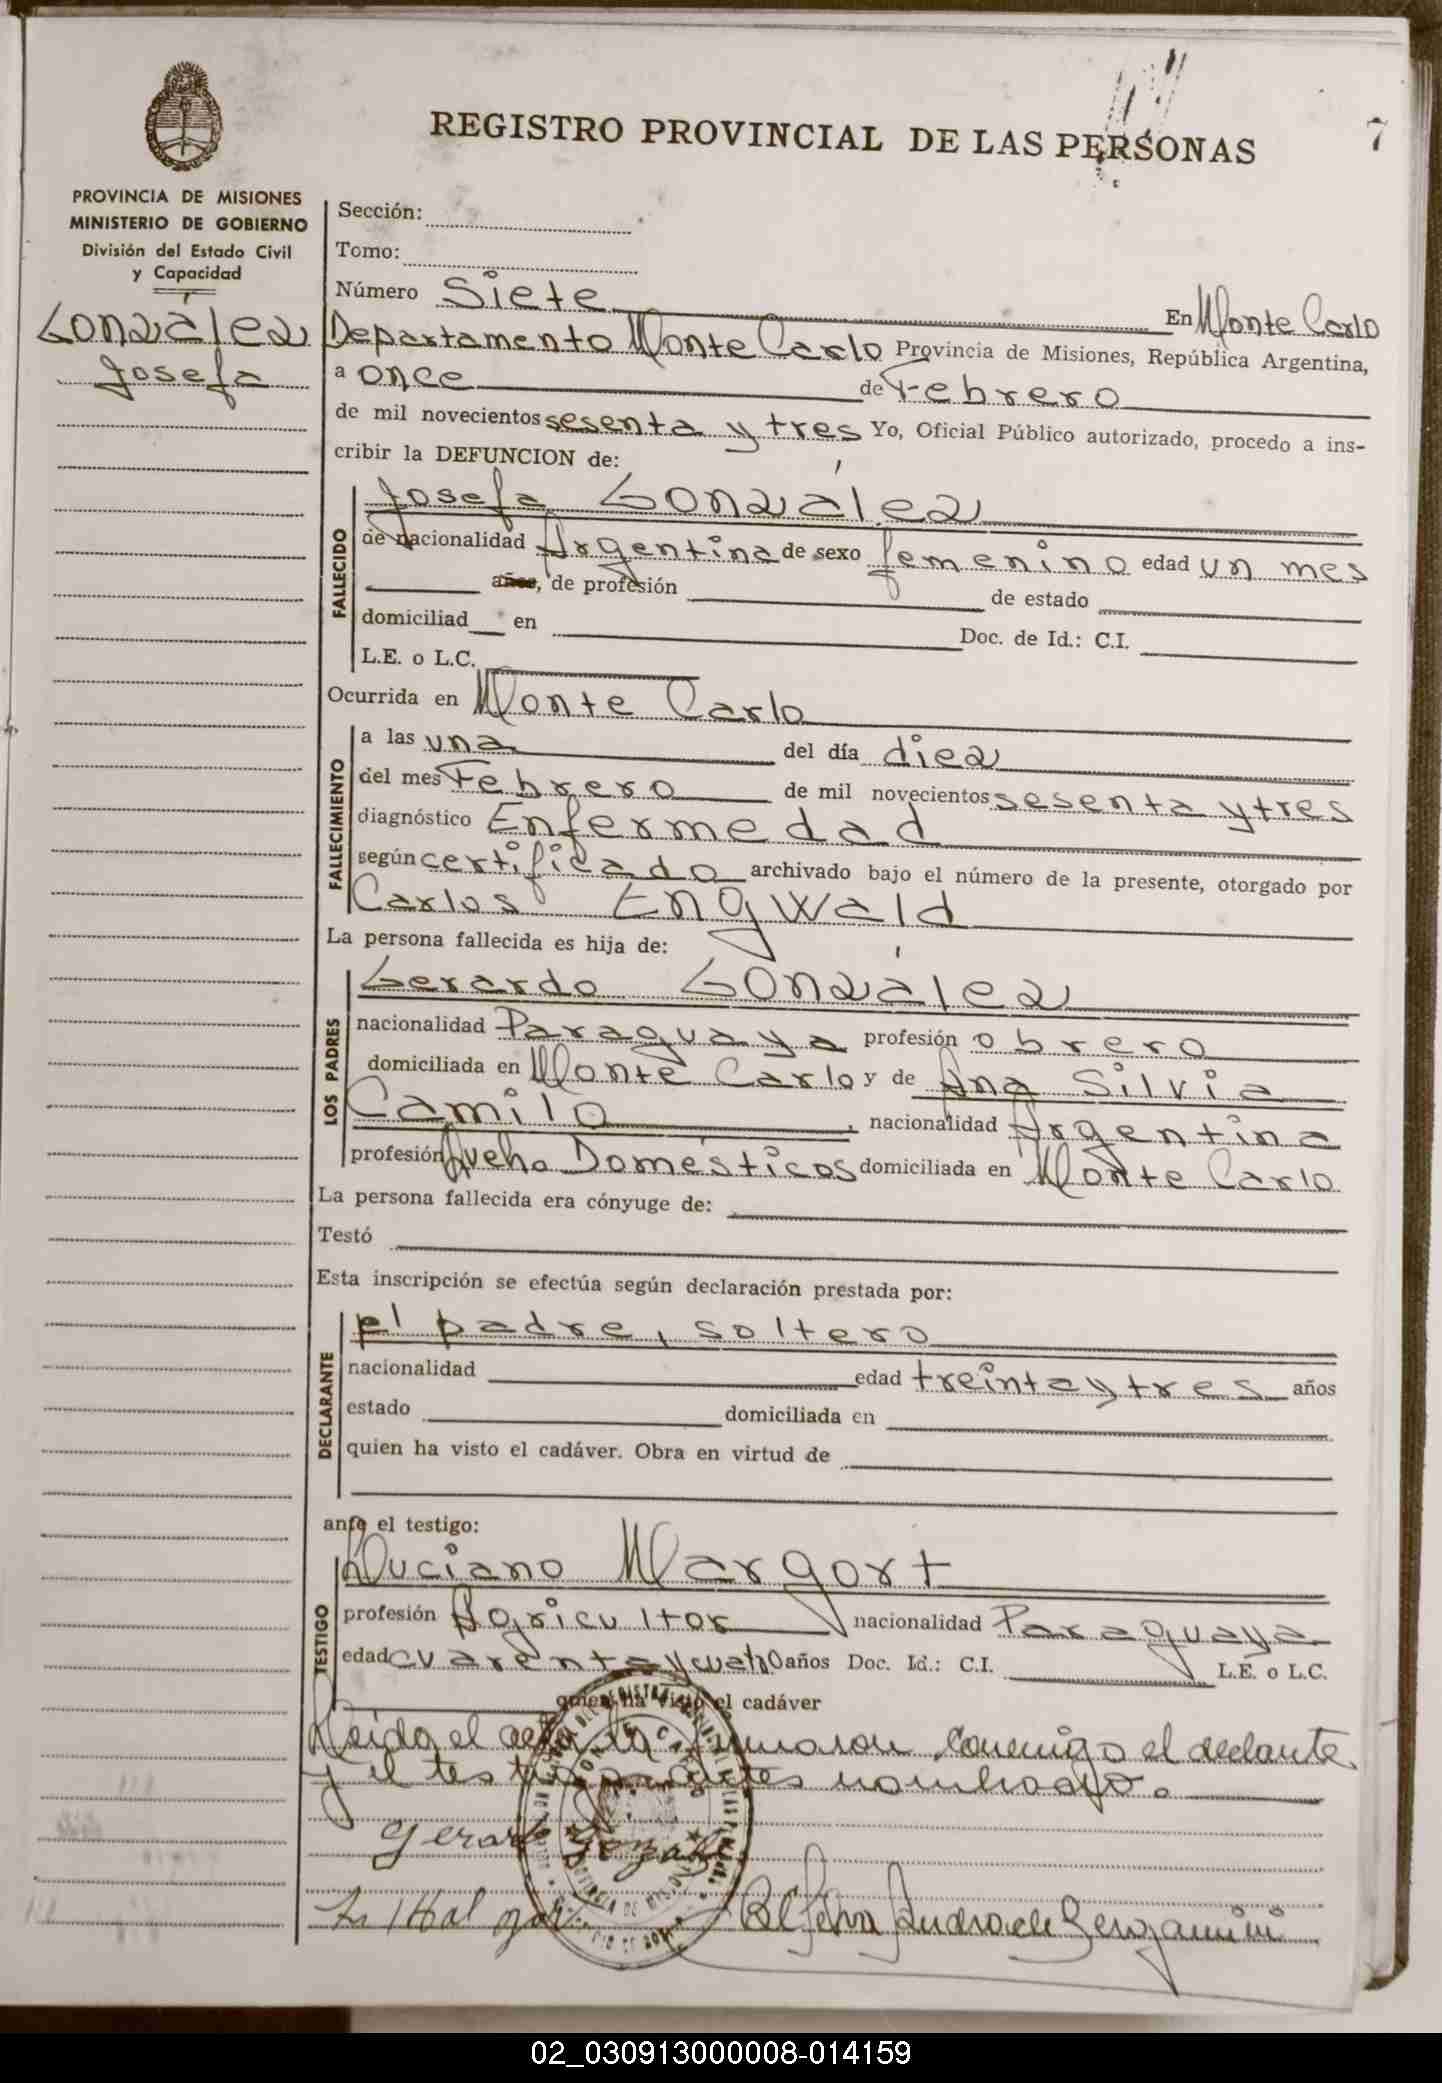 REGISTRO PROVINCIAL DE LAS PERSONAS
7
PROVINCIA DE MISIONES
MINISTERIO DE GOBIERNO
División del Estado Civil
y Capacidad
González
Josefa
Sección:
Tomo:
Número Siete En Monte Carlo
Departamento Monte Carlo Provincia de Misiones, República Argentina,
a once de Febrero
de mil novecientos sesenta y tres Yo, Oficial Público autorizado, procedo a ins-
cribir la DEFUNCION de:
FALLECIDO
Josefa González
de nacionalidad Argentina de sexo femenino edad un mes
años, de profesión de estado
domiciliad en Doc. de Id.: C.I.
L.E. o L.C.
Ocurrida en Monte Carlo
FALLECIMIENTO
a las una del día diez
del mes Febrero de mil novecientos sesenta y tres
diagnóstico Enfermedad
según certificado archivado bajo el número de la presente, otorgado por
Carlos Engwald
La persona fallecida es hija de:
LOS PADRES
Gerardo González
nacionalidad Paraguaya profesión obrero
domiciliada en Monte Carlo y de Ana Silvia
Camilo, nacionalidad Argentina
profesión Queha Domésticos domiciliada en Monte Carlo
La persona fallecida era cónyuge de:
Testó
Esta inscripción se efectúa según declaración prestada por:
DECLARANTE
el padre, soltero
nacionalidad edad treinta y tres años
estado domiciliada en
quien ha visto el cadáver. Obra en virtud de
ante el testigo:
TESTIGO
Luciano Margort
profesión Agricultor nacionalidad Paraguaya
edad cuarenta y cuatro años Doc. Id.: C.I. L.E. o L.C.
quien ha visto el cadáver
Leida el acta la firmaron conmigo el declante
y el testigo antes nombrado.
Gerardo Gonzalez
02_030913000008-014159